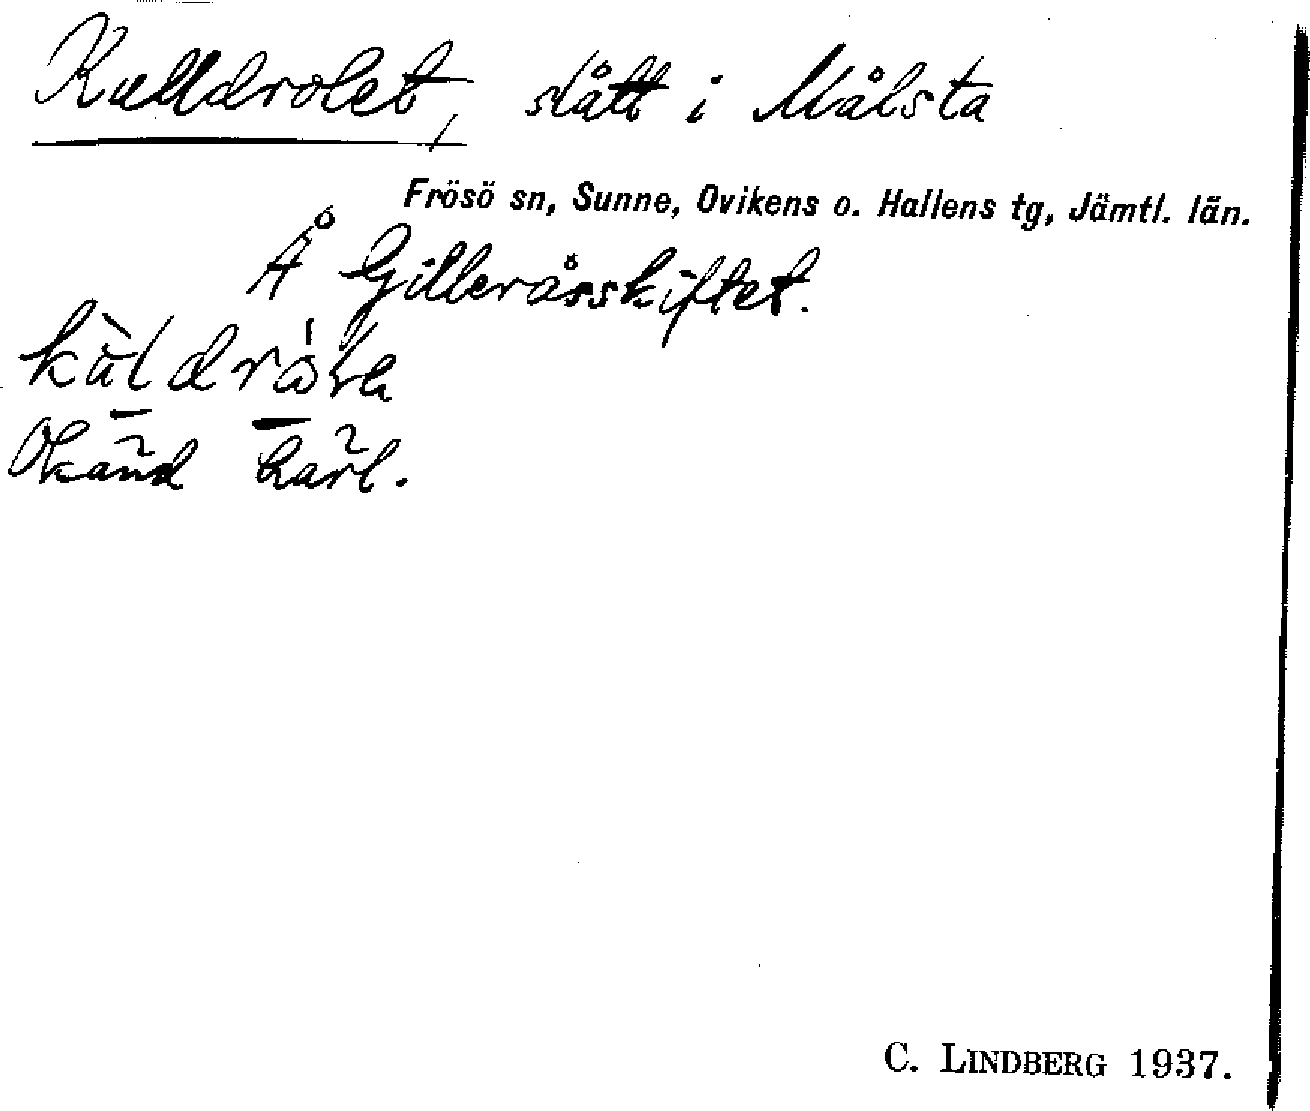 Kulldrolet, slått i Målsta
Frösö sn, Sunne, Ovikens o. Hallens tg, Jämtl. län.
Å Gilleråsskiftet.
Okänd härl.
C. LINDBERG 1937.